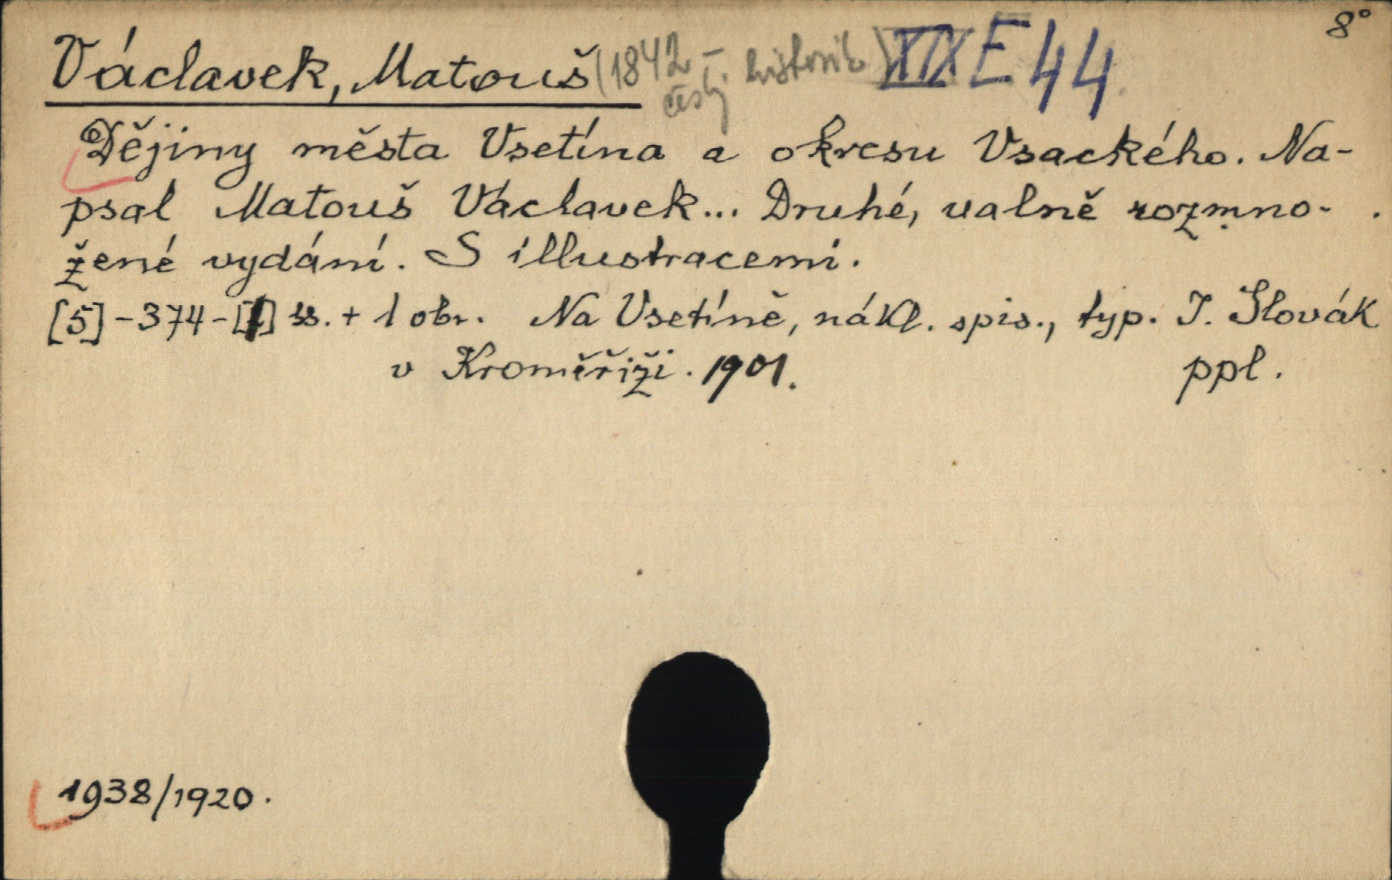 8°
Václavek, Matouš (1842 – český historik) XIX E 44
Dějiny města Vsetína a okresu Vsackého. Na-
psal Matouš Václavek... Druhé, valně rozmno-
žené vydání. S illustracemi.
[5]-374-[1] ss. + 1 obr. Na Vsetíně, nákl. spis., typ. J. Slovák
v Kroměříži. 1901. ppl.
1938/1920.